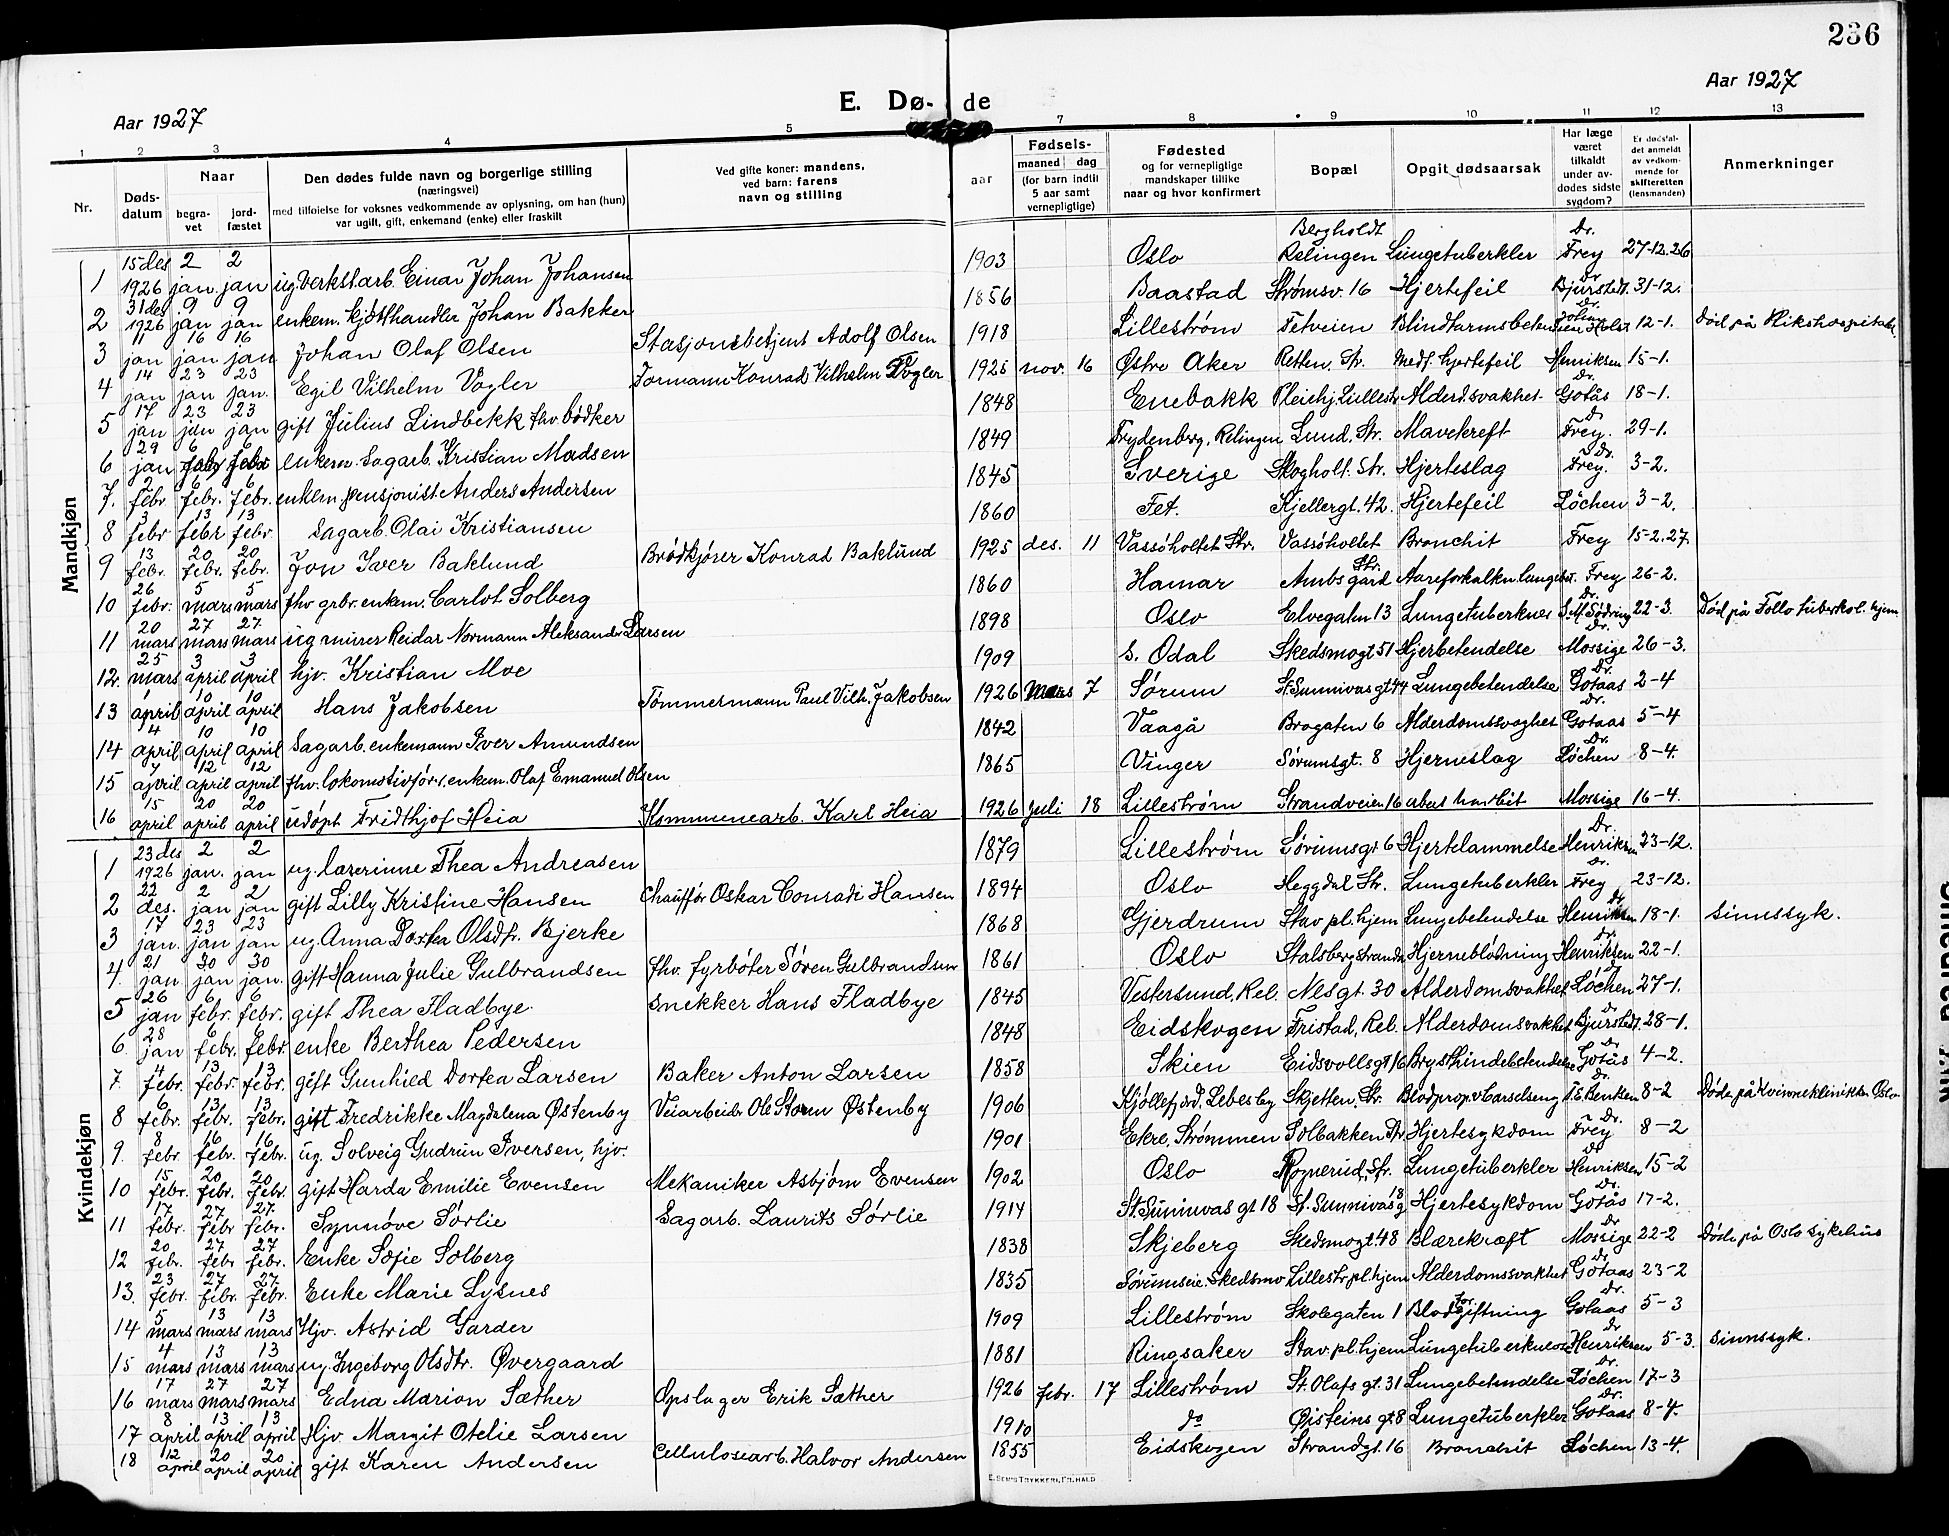 236
Aar 1927
E. Dø- de
Aar 1927
1 2 3 4 5 7 8 9 10 11 12 13
Nr.
Døds-datum
Naar
begra-vet
jord-fæstet
Den dødes fulde navn og borgerlige stilling
(næringsvei)
med tilføielse for voksnes vedkommende av oplysning, om han (hun)
var ugift, gift, enkemand (enke) eller fraskilt
Ved gifte koner: mandens,
ved barn: farens
navn og stilling
aar
Fødsels-
maaned dag
(for barn indtil
5 aar samt
vernepligtige)
Fødested
og for vernepligtige
mandskaper tillike
naar og hvor konfirmert
Bopæl
Opgit dødsaarsak
Har læge
været
tilkaldt
under av-
dødes sidste
sygdom?
Er dødsfal-
det anmeldt
av vedkom-
mende for
skifteretten
(lensmanden)
Anmerkninger
Mandkjøn
1 15 des 1926 2 jan. 2 jan ug. Verkstarb. Einar Johan Johansen 1903 Oslo Bergholdt Relingen Lungetuberkler Dr. Frey 27-12.26
2 31 des 1926 9 jan 9 jan enkem. kjøtthandler Johan Bakker 1856 Baastad Strømsv. 16 Hjertefeil Dr Bjurstedt. 31-12.
3 11 jan 16 jan 16 jan Johan Olaf Olsen Stasjonsbetjent Adolf Olsen 1918 Lillestrøm Tetveien Blindtarmsbeten Dr. Johan Holst 12-1. Død på Rikshospitalet
4 14 jan 23 jan 23 jan. Egil Vilhelm Vogler Formann Konrad Vilhelm Vogler 1925 nov. 16 Østre Aker Retten. Str. Medf. hjertefeil Henriksen 15-1.
5 17 jan 23 jan 23 jan gift Julius Lindbekk fhv. bødker 1848 Enebakk Pleiehj. Lillestr Alderd.svakhet Dr. Gotås 18-1.
6 29 jan 6 febr 6 febr enkem. Sagarb. Kristian Madsen 1849 Frydenberg, Relingen Lund. Str. Mavekreft Dr Frey. 29-1.
7. 2 febr 6 febr. 6 febr. enkem. pensjonist Anders Andersen 1845 Sverige Skogholt. Str. Hjerteslag Frey. 3-2.
8 3 febr 13 febr 13 febr Sagarb. Olai Kristiansen 1860 Fet. Kjellergt. 42. Hjertefeil Dr. Løchen 3-2.
9 13 febr. 20 febr. 20 febr. Jon Iver Baklund Brødkjører Konrad Baklund 1925 des. 11 Vassøholtet Str. Vassøholtet Str. Bronchit Frey 15-2.27.
10 26 febr. 5 mars 5 mars fhv. grbr. enkem. Carlot Solberg 1860 Hamar Ambs gård Aareforkalkn. lungebet. Frey 26-2.
11 20 mars 27 mars 27. mars ug murer Reidar Normann Aleksander Larsen 1898 Oslo Elvegaten 13 Lungetuberkner Dr. S.M. Sødring 22-3. Død på Follo tuberkol. hjem
12. 25 mars 3 april 3 april hjv. Kristian Moe 1909 S. Odal Skedsmogt 51 Hjerbetendelse Dr. Mossige 26-3.
13 1 april 10 april 10 april Hans Jakobsen Tømmermann Paul Vilh. Jakobsen 1926 Mars 7 Sørum St. Sunnivas gt 44 Lungebetendelse Dr Gotaas 2-4
14 4 april 10 april 10 april Sagarb. enkemann Iver Amundsen 1842 Vaagå Brogaten 6 Alderdomssvaghet Dr. Gotaas 5-4
15 7 april 12 april 12 april fhv. lokomotivfør. enkem. Olaf Emanuel Olsen 1865 Vinger Sørumsgt. 8 Hjerneslag Dr. Løchen 8-4.
16 15 april 20 april 20 april udøpt Fridthjof Heia Kommunearb. Karl Heia 1926 juli 18 Lillestrøm Strandveien 16 Mossige 16-4.
Kvindekjøn
1 23 des 1926 2 jan. 2 jan ug. lærerinne Thea Andreasen 1879 Lillestrøm Sørumsgt 6 Hjertelammelse Dr. Henriksen 23-12.
2 22 des. 2 jan 2 jan gift Lilly Kristine Hansen Chauffør Oskar Conradi Hansen 1894 Oslo Heggdal Str. Lungetuberkler Dr. Frey 23-12.
3 17 jan. 23 jan 23 jan ug. Anna Dortea Olsdtr. Bjerke 1868 Gjerdrum Stav pl. hjem Lungebetendelse Dr Henriksen 18-1. sinnssyk.
4. 21 jan 30 jan 30 jan. gift Hanna Julie Gulbrandsen fhv. fyrbøter Søren Gulbrandsen 1861 Oslo Stalsberg strandv Hjerneblødning Dr. Henriksen 22-1.
5 26 jan 6 febr. 6 febr. gift Thea Fladbye. Snekker Hans Fladbye 1845 Vestersund, Rel. Nesgt. 30 Alderdomsvakhet Dr Løchen 27-1.
6. 28 jan 6 febr. 6 febr. enke Berthea Pedersen 1848 Eidskogen Fristad, Rel. Alderdomsvakhet Dr Bjurstedt. 28-1.
7. 4 febr. 13 febr. 13 febr. gift Gunhild Dortea Larsen Baker Anton Larsen 1858 Skien Eidsvollsgt 16 Brysthindebetendelse Dr Gotås 4-2.
8 6 febr. 13 febr. 13 febr. gift Fredrikke Magdalena Østenby Veiarbeider Ole Storm Østenby 1906 Kjøllefjord, Lebesby Skjetten. Str. Blodprop v Barselseng Dr. T.E. Bentsen 8-2 Døde på Kvinneklinikken Oslo
9. 8 febr 16 febr. 16 febr. ug. Solveig Gudrun Iversen, hjv. 1901 Ekre, Strømmen Solbakken Str Hjertesykdom Dr. Frey 8-2
10 15 febr. 20 febr. 20 febr. gift Harda Emilie Evensen Mekaniker Asbjørn Evensen 1902 Oslo Rognerud, Str. Lungetuberkler Dr Henriksen 15-2
11 17 febr. 27 febr 27. febr. Synnøve Sørlie Sagarb. Laurits Sørlie 1914 St. Sunnivas gt 18 St. Sunnivas g 18 Hjertesykdom Dr. Gotås 17-2.
12 20 febr. 27 febr 27 febr. Enke Sofie Solberg 1838 Skjeberg Skedsmogt. 48 Blærekræft Dr Mossige 22-2 Døde på Oslo sykehus
13. 23 febr. 27 febr. 27. febr. Enke Marie Lysnes 1835 Sørumseie. Skedsmo Lillestr pl. hjem Alderdomssvakhet Dr Gotaas 23-2
14 5 mars 13 mars 13 mars Hjv. Astrid Garder 1909 Lillestrøm Skolegaten 1 Blodforgiftning Dr. Gotaas 5-3
15 4 mars 13 mars 13 mars ug. Ingeborg Olsdtr. Øvergaard 1881 Ringsaker Stav. pl. hjem Lungetuberkulose Dr Henriksen 5-3. sinnssyk.
16 17 mars 27 mars 27 mars Edna Marion Sæther Opslager Erik Sæther 1926 febr. 17 Lillestrøm St. Olafs gt. 31 Lungebetendelse Dr. Løchen 17-3
17 8 april 13 april 13 april Hjv. Margit Otelie Larsen 1910 do Øisteins gt. 8 Lungetuberkler Dr. Gotaas 8-4.
18 12 april 20 april 20 april gift Karen Andersen Cellulosearb. Halvor Andersen 1855 Eidskogen Strandgt. 16 Bronchit Løchen 13-4.
E. SEM'S TRYKKERI, FR.HALD